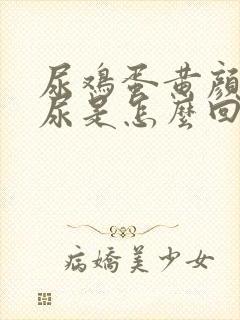 尿鸡蛋黄颜
尿是怎麼回
病嬌美少女